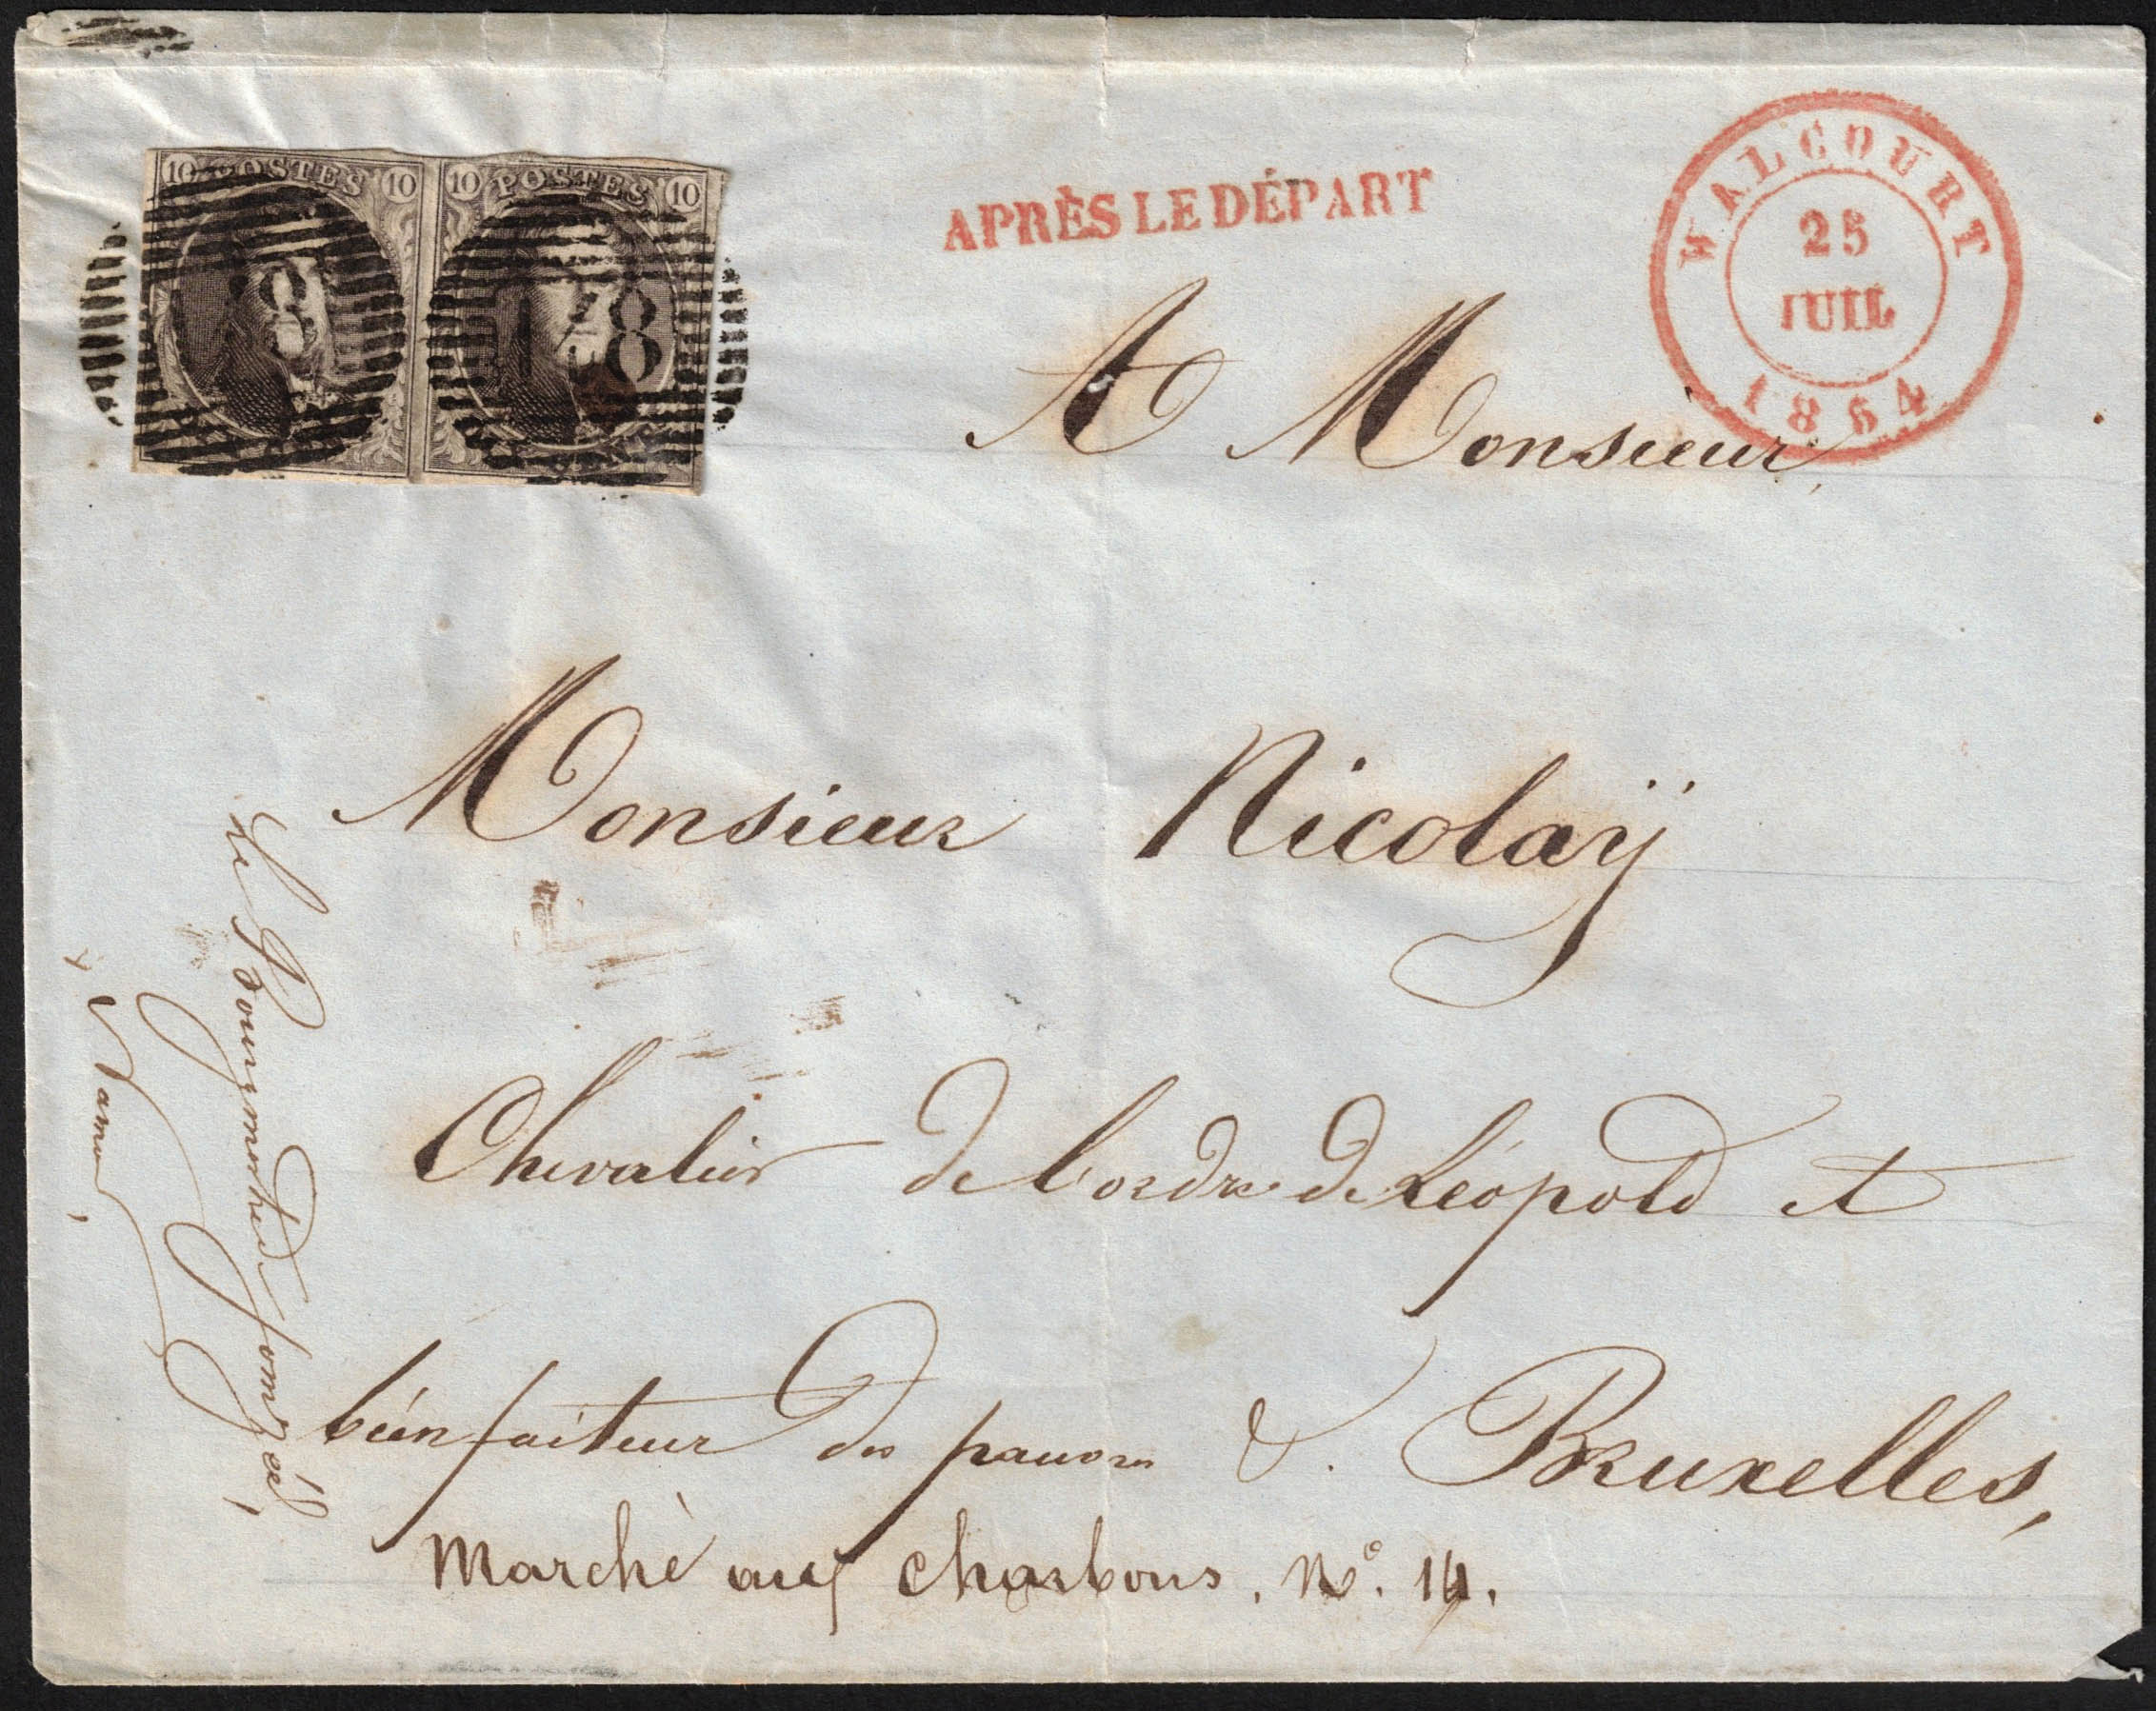 10 POSTES 10
10 POSTES 10
APRÈS LE DÉPART
WALCOURT
25
JUIL
1854
A Monsieur,
Monsieur Nicolaÿ
Chevalier de l'ordre de Léopold et
biénfaiteur des pauvres &. Bruxelles,
Marché aux Charbons. No. 14.
Le Bourgmestre de
Namur,